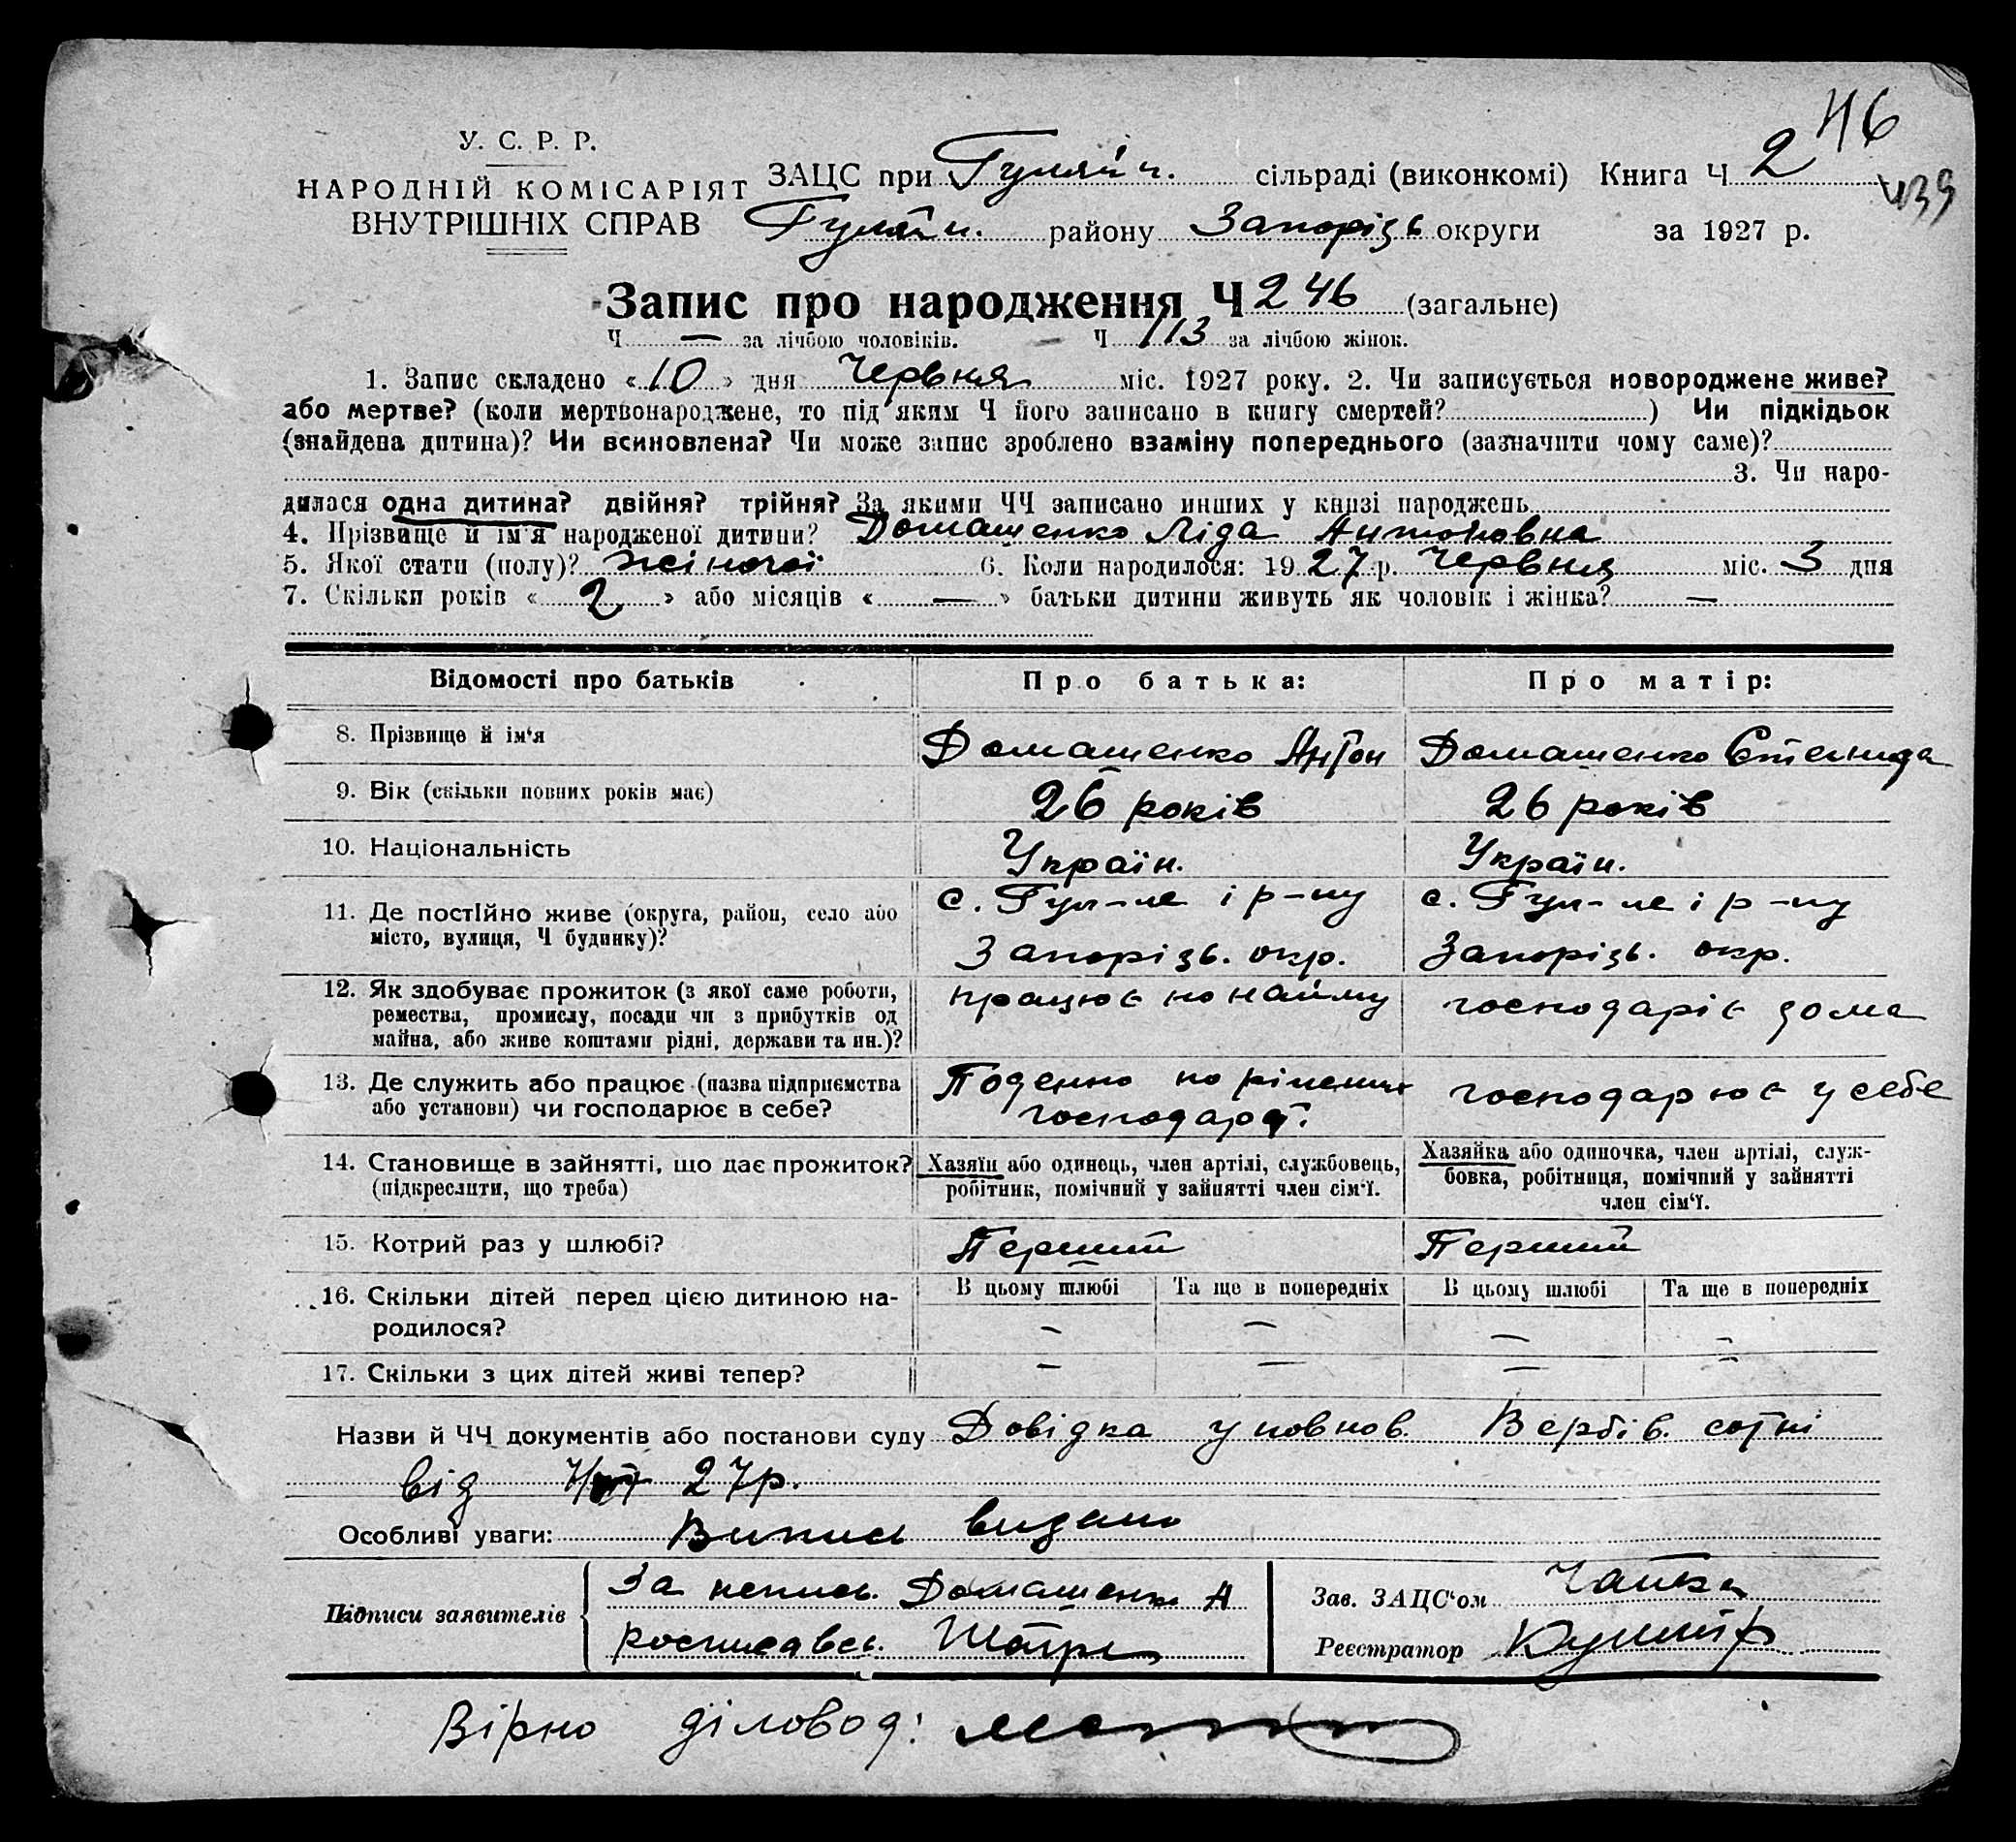 46
439
У. С. Р. Р.
НАРОДНІЙ КОМІСАРІЯТ
ВНУТРІШНІХ СПРАВ
ЗАЦС при Гуляйп. сільраді (виконкомі) Книга Ч 2
Гуляйп. району Запорізь округи за 1927 р.
Запис про народження Ч 246 (загальне)
Ч — за лічбою чоловіків. — Ч 113 за лічбою жінок.
1. Запис складено «10» дня Червня міс. 1927 року. 2. Чи записується новороджене живе?
або мертве? (коли мертвонароджене, то під яким Ч його записано в книгу смертей? ) Чи підкідьок
(знайдена дитина)? Чи всиновлена? Чи може запис зроблено взаміну попереднього (зазначити чому саме)?
3. Чи наро-
дилася одна дитина? двійня? трійня? За якими ЧЧ записано инших у книзі народжень
4. Прізвище й ім'я народженої дитини? Домашенко Ліда Антоновна
5. Якої стати (полу)? жіночої 6. Коли народилося: 1927 р. Червня міс. 3 дня
7. Скільки років «2» або місяців «—» батьки дитини живуть як чоловік і жінка? —
Відомості про батьків Про батька: Про матір:
8. Прізвище й ім‘я Домашенко Антон Домашенко Степнида
9. Вік (скільки повних років має) 26 років 26 років
10. Національність Україн. Україн.
11. Де постійно живе (округа, район, село або с. Гул-ле і р-ну с. Гул-ле і р-ну
місто, вулиця, Ч будинку)? Запорізь. окр. Запорізь. окр.
12. Як здобуває прожиток (з якої саме роботи, працює по найму господаріє дома
ремества, промислу, посади чи з прибутків од
майна, або живе коштами рідні, держави та ин.)?
13. Де служить або працює (назва підприємства Поденно по різним господарює у себе
або установи) чи господарює в себе? господарст.
14. Становище в зайнятті, що дає прожиток? Хазяїн або одинець, член артілі, службовець, Хазяйка або одиночка, член артілі, служ-
(підкреслити, що треба) робітник, помічний у зайнятті член сім‘ї. бовка, робітниця, помічний у зайнятті
член сім‘ї.
15. Котрий раз у шлюбі? Перший Перший
16. Скільки дітей перед цією дитиною на- В цьому шлюбі Та ще в попередніх В цьому шлюбі Та ще в попередніх
родилося? — — — —
17. Скільки з цих дітей живі тепер? — — — —
Назви й ЧЧ документів або постанови суду Довідка уповнов. Вербів. сотні
від 27р.
Особливі уваги: Випись видано
Підписи заявителів За неписьм. Домашенко А Зав. ЗАЦС‘ом
росписавсь. Реєстратор Кушнір
Вірно діловод: